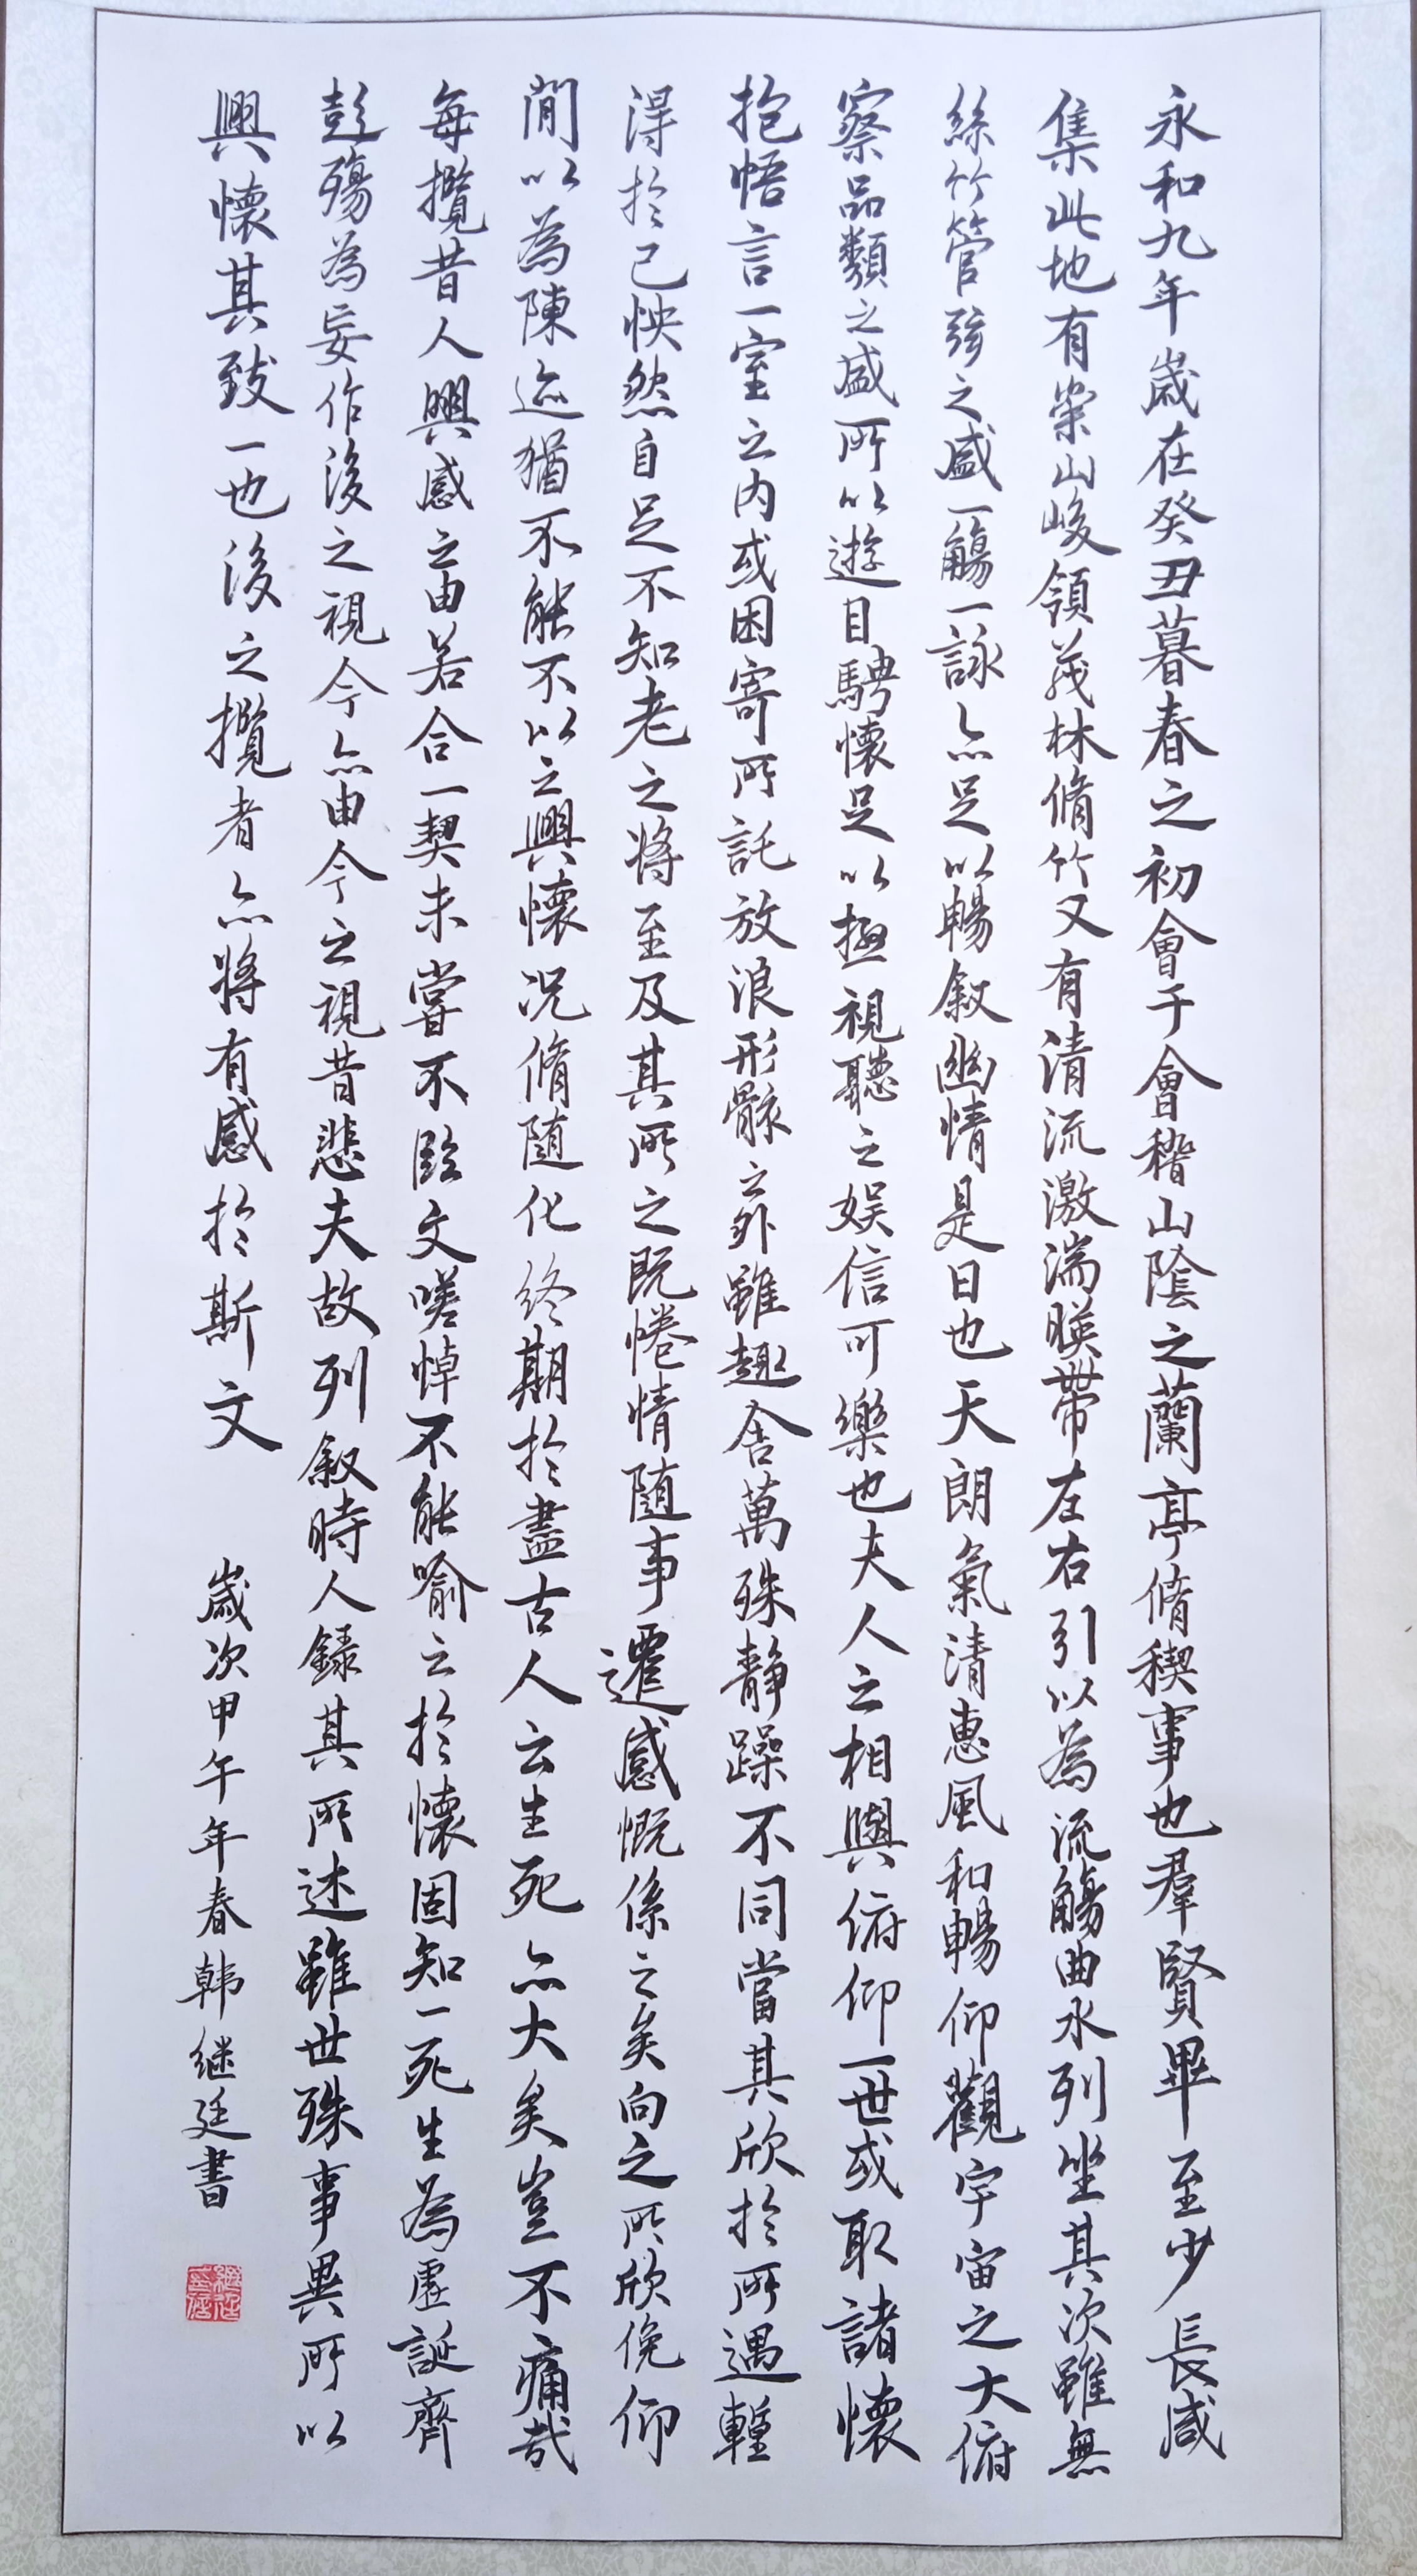 永和九年歲在癸丑暮春之初會于會稽山陰之蘭亭脩稧事也羣賢畢至少長咸
集此地有崇山峻領茂林脩竹又有清流激湍暎帶左右引以為流觴曲水列坐其次雖無
絲竹管弦之盛一觴一詠亦足以暢敘幽情是日也天朗氣清惠風和暢仰觀宇宙之大俯
察品類之盛所以遊目騁懷足以極視聽之娛信可樂也夫人之相與俯仰一世或取諸懷
抱悟言一室之内或因寄所託放浪形骸之外雖趣舍萬殊靜躁不同當其欣於所遇蹔
得於己怏然自足不知老之將至及其所之既惓情随事遷感慨係之矣向之所欣俛仰
閒以為陳迹猶不能不以之興懷况脩随化終期於盡古人云生死亦大矣豈不痛哉
每攬昔人興感之由若合一契未嘗不臨文嗟悼不能喻之於懷固知一死生為虛誕齊
彭殤為妄作後之視今亦由今之視昔悲夫故列敘時人錄其所述雖世殊事異所以
興懷其致一也後之攬者亦將有感於斯文
歲次甲午年春韩继廷書